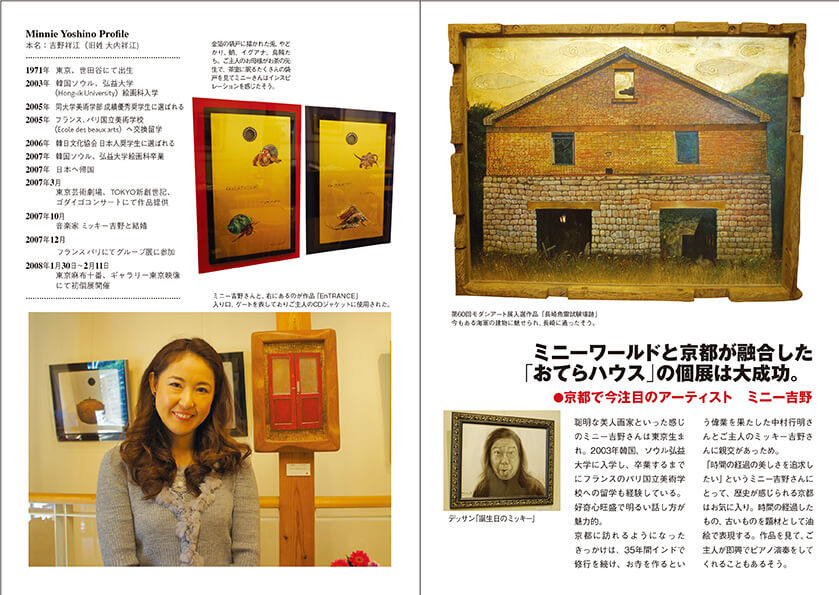 Minnie Yoshino Profile
本名：吉野祥江（旧姓 大内祥江）
1971年 東京、世田谷にて出生
2003年 韓国ソウル、弘益大学
（Hong-ik University）絵画科入学
2005年 同大学美術学部 成績優秀奨学生に選ばれる
2005年 フランス、パリ国立美術学校
（Ecole des beaux arts）へ交換留学
2006年 韓日文化協会 日本人奨学生に選ばれる
2007年 韓国ソウル、弘益大学絵画科卒業
2007年 日本へ帰国
2007年3月
東京芸術劇場、TOKYO新創世記、
ゴダイゴコンサートにて作品提供
2007年10月
音楽家 ミッキー吉野と結婚
2007年12月
フランス パリにてグループ展に参加
2008年1月30日～2月11日
東京麻布十番、ギャラリー東京映像
にて初個展開催
金箔の襖戸に描かれた兎、やど
かり、蛸、イグアナ、烏賊た
ち。ご主人のお母様がお茶の先
生で、茶室に眠るたくさんの襖
戸を見てミニーさんはインスピ
レーションを感じたそう。
ミニー吉野さんと、右にあるのが作品「EnTRANCE」
入り口、ゲートを表しておりご主人のCDジャケットに使用された。
第60回モダンアート展入選作品「長崎魚雷試験場跡」
今もある海軍の建物に魅せられ、長崎に通ったそう。
ミニーワールドと京都が融合した
「おてらハウス」の個展は大成功。
●京都で今注目のアーティスト ミニー吉野
デッサン「誕生日のミッキー」
聡明な美人画家といった感じ
のミニー吉野さんは東京生ま
れ。2003年韓国、ソウル弘益
大学に入学し、卒業するまで
にフランスのパリ国立美術学
校への留学も経験している。
好奇心旺盛で明るい話し方が
魅力的。
京都に訪れるようになった
きっかけは、35年間インドで
修行を続け、お寺を作るとい
う偉業を果たした中村行明さ
んとご主人のミッキー吉野さ
んに親交があったため。
「時間の経過の美しさを追求し
たい」というミニー吉野さんに
とって、歴史が感じられる京都
はお気に入り。時間の経過した
もの、古いものを題材として油
絵で表現する。作品を見て、ご
主人が即興でピアノ演奏をして
くれることもあるそう。